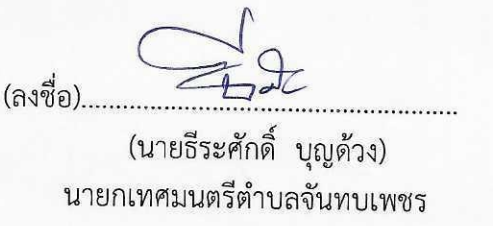 (ลงชื่อ)......................................................
(นายธีระศักดิ์ บุญด้วง)
นายกเทศมนตรีตำบลจันทบเพชร